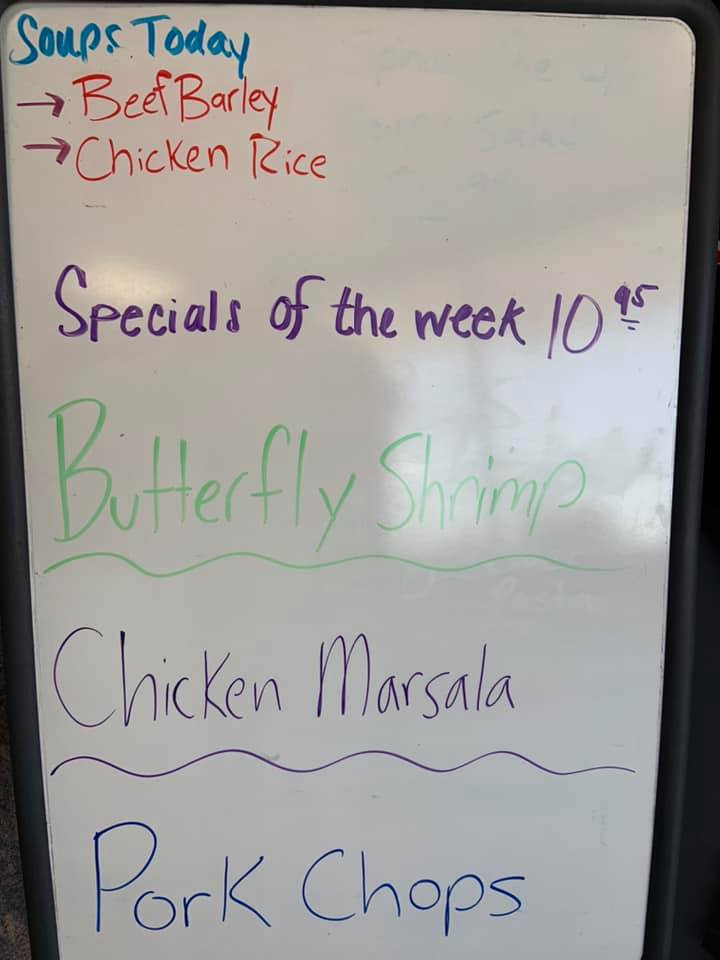 Soups Today
→ Beef Barley
→ Chicken Rice
Specials of the week 10 95
Butterfly Shrimp
Chicken Marsala
Pork Chops